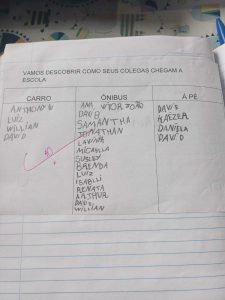 VAMOS DESCOBRIR COMO SEUS COLEGAS CHEGAM A
ESCOLA
CARRO
ANTHONY
LUIZ
WILLIAN
DAVID
ÔNIBUS
ANA VITOR JOÃO
DAVI
SAMANTHA
JONATHAN
LAVINIA
MICAELLA
SUELEY
BRENDA
LUIZ
ISABILLI
RENATA
ARTHUR
DAVI
WILLIAN
À PÉ
DAVI
DANIELA
DAVID